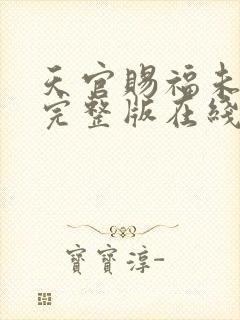 天官賜福未
完整版在綫
寶寶淳-